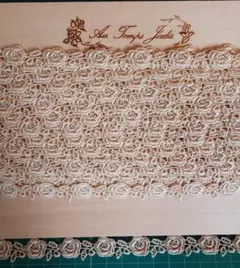 Au Temps Jadis